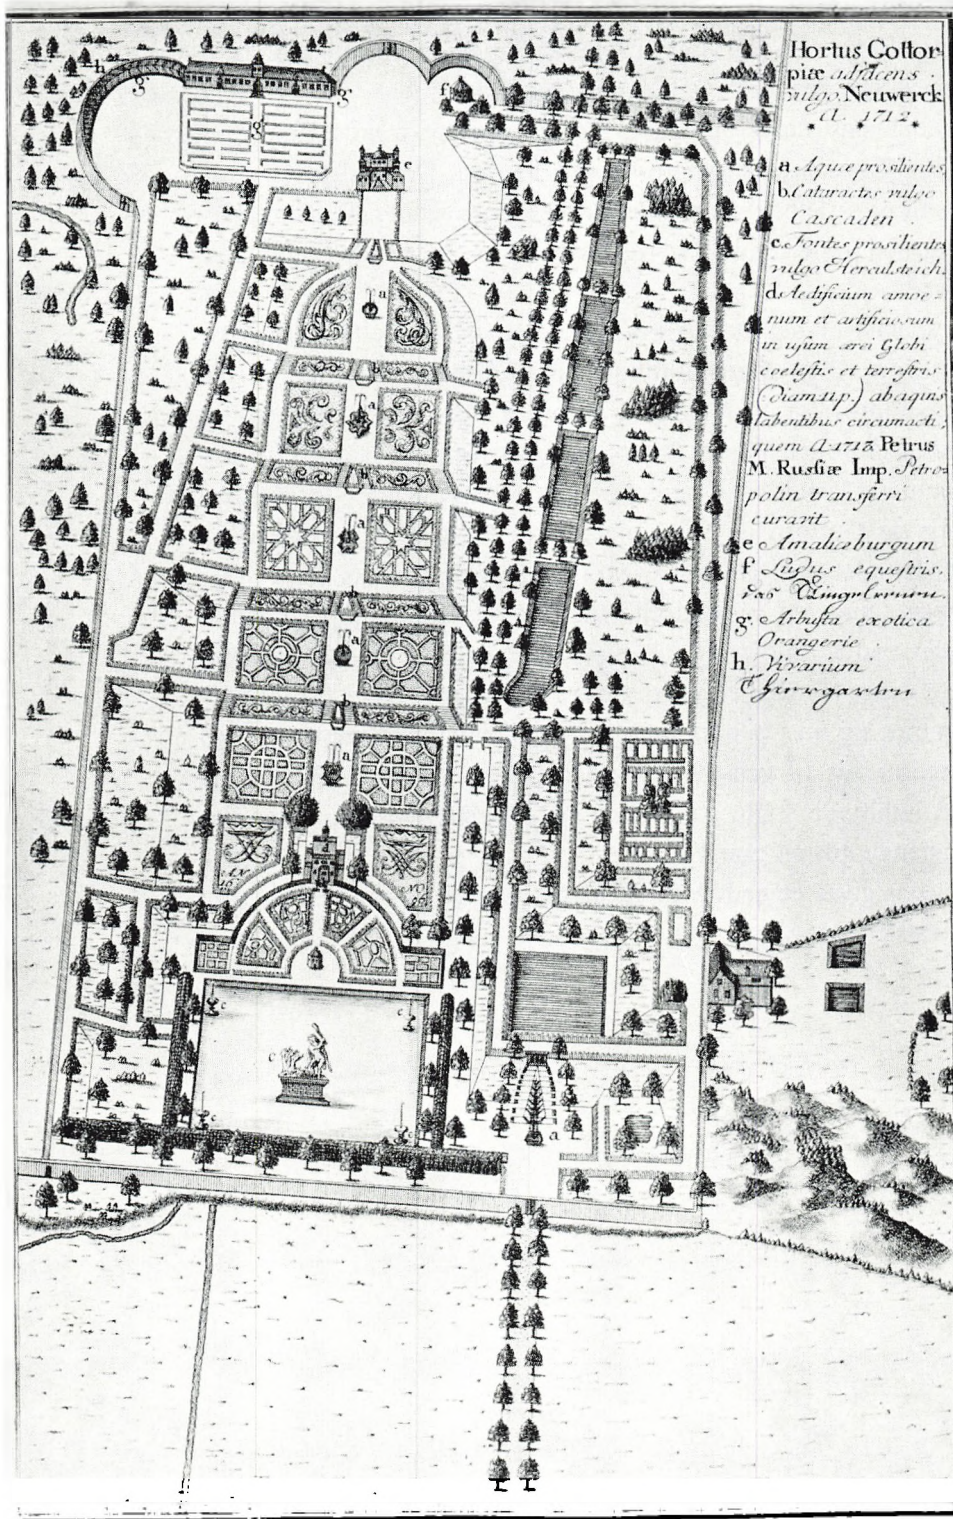 Hortus Gottor-
piæ adjacens
vulgo Neuwerck
A. 1712
a Aquæ prosilientes
b. Cataractes vulgo
Cascaden.
c. Fontes prosilientes
vulgo Herculsteich.
d. Aedificium amoe=
num et artificiosum
in usum ærei Globi
coelestis et terrestris
(Diam. 11 p.) ab aquis
labentibus circumacti,
quem A. 1713 Petrus
M. Russiæ Imp. Petro=
polin transferri
curavit.
e Amaliæburgum
f Ludus equestris.
das Ringelrennen.
g. Arbusta exotica
Orangerie.
h. Vivarium
Thiergarten
h
g
g
g
f
e
a
b
a
b
a
b
a
b
a
d
AN
NO
c
c
c
c
c
a